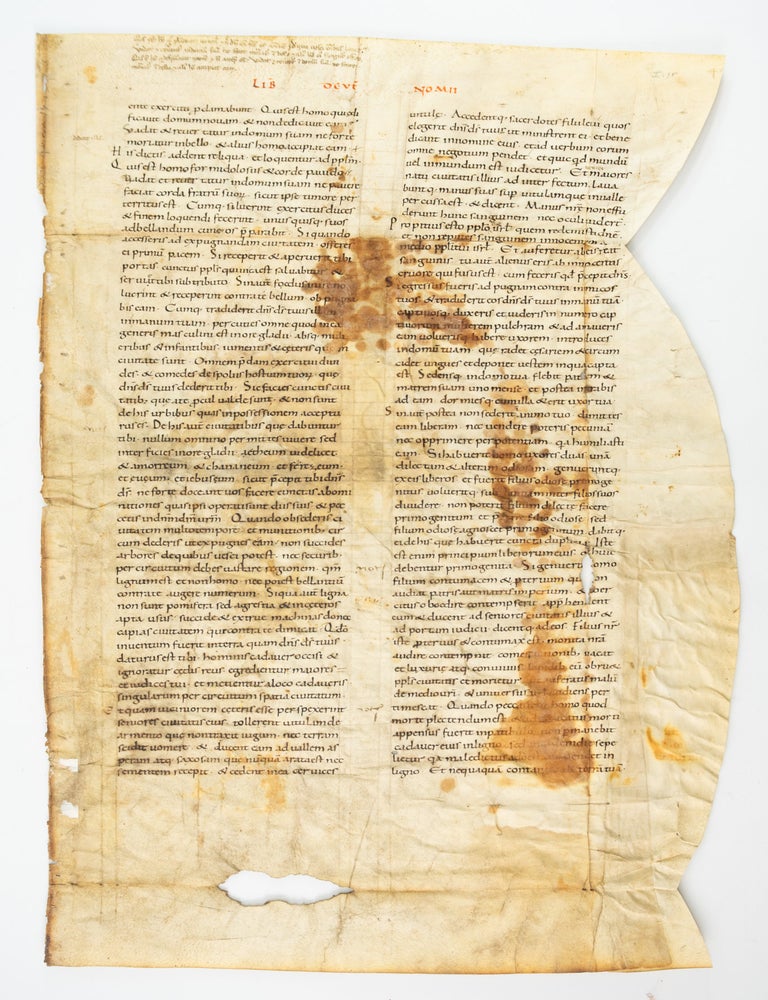 LIB DEUT
NOMII
ente exercitu pclamabunt. Quis est homo qui edi
ficauit domum nouam. & non dedicauit eam
Vadat & reuertatur in domum suam ne forte
moriatur in bello. & alius homo accipiat eam
His dictis addent reliqua. et loquentur ad pplm.
Quis est homo formidolosus & corde pauido.
Vadat et reuertatur in domum suam ne pauere
faciat corda fratrū suorū. sicut ipse timore per
territus est. Cumq; siluerint exercitus duces
& finem loquendi fecerint. unus quisq; suos
ad bellandum cuneos pparabit. Si quando
accesseris ad expugnandam ciuitatem offeres
ei primū pacem. Si receperit & aperuerit tibi
portas cunctus ppls qui in ea est saluabitur &
seruiet tibi sub tributo. Sin aut foedus inire no
luerint & receperint contra te bellum. obpugna
bis eam. Cumq; tradiderit dns ds tuus illam
in manum tuam. percuties omne quod in ea
generis masculini est in ore gladii. absq; muli
eribus & infantibus. iumentis & ceteris que in
ciuitate sunt. Omnem pdam exercitui diui
des. & comedes de spoliis hostium tuorū. que
dns ds tuus dederit tibi. Sic facies cunctis ciui
tatib; que a te pcul ualde sunt. & non sunt
de his urbibus quas in possessionem acceptu
rus es. De his aut ciuitatibus que dabuntur
tibi. nullum omnino permittes uiuere sed
interficies in ore gladii. aetheum uidelicet
& amorreum. & chananeum. et ferezeum.
et eueum. et iebuseum. sicut pcepit tibi dns
ds. ne forte doceant uos facere cunctas abomi
nationes quas ipsi operati sunt diis suis & pec
cetis in dnm dm urm. Quando obsederis ci
uitatem multo tempore. et munitionib; cir
cum dederis ut expugnes eam. non succides
arbores de quibus uesci potest. nec securib;
per circuitum debes uastare regionem. qm
lignum est et non homo. nec potest bellantiū
contra te augere numerum. Si qua aut ligna
non sunt pomifera sed agrestia. & in ceteros
apta usus. succide & extrue machinas donec
capias ciuitatem que contra te dimicat. Qdo
inuentum fuerit in terra quam dns ds tuus
daturus est tibi. hominis cadauer occisi. &
ignoratur cedis reus egredientur maiores
et iudices tui. et metientur a loco cadaueris
singularum per circuitum spatia ciuitatum.
et quam uiciniorem ceteris esse perspexerint
seniores ciuitatis eius. tollent uitulam de
armento que non traxit iugum. nec terram
scidit uomere. & ducent eam ad uallem as
peram atq; saxosam que nūquā arata est nec
sementem recepit. & cedent in ea ceruices
uitule. Accedentq; sacerdotes filii leui quos
elegerit dns ds tuus ut ministrent ei. et bene
dicant in nomine eius. et ad uerbum eorum
omne negotium pendet. et quicqd mundū
uel inmundum est iudicetur. Et maiores
natu ciuitatis illius ad interfectum. Laua
bunt q; manus suas sup uitulam que in ualle
percussa est. & dicent. Manus nrē non effu
derunt hunc sanguinem. nec oculi uiderunt.
Propitius esto pplo isrl. quem redemisti dne
et non reputes sanguinem innocentem in
medio ppli tui isrl. Et auferetur ab eis reat
sanguinis. tu aut alienus eris ab innocentis
cruore qui fusus est. cum feceris qd pcepit dns.
Si egressus fueris ad pugnam contra inimicos
tuos & tradiderit eos dns ds tuus in manu tua.
captiuosq; duxeris et uideris in numero cap
tiuorum mulierem pulchram & adamaueris
eam uolueris q; habere uxorem. introduces
in domū tuam. que radet cesariem & circum
cidet ungues et deponet uestem in qua capta
est. Sedens q; in domo tua flebit patrem &
matrem suam uno mense. et postea intrabis
ad eam. dormies q; cum illa & erit uxor tua
Sin aut postea non sederit animo tuo. dimittes
eam liberam. nec uendere poteris pecunia
nec opprimere per potentiam. qa humiliasti
eam. Si habuerit homo uxores duas. unā
dilectam & alteram odiosam. genuerintq;
ex eis liberos. et fuerit filius odiose primoge
nitus uoluerit q; substantiam inter filios suos
diuidere. non poterit filium dilecte facere
primogenitum et pferre filio odiose. sed
filium odiose agnoscet primogenitum. dabit q;
ei de his que habuerit cuncta duplicia. Iste
est enim principium liberorum eius & huic
debentur primogenita. Si genuerit homo
filium contumacem & proteruum qui non
audiat patris aut matris imperium. & coher
citus oboedire contempserit. apphendent
eum & ducent ad seniores ciuitatis illius &
ad portam iudicii. dicent q; ad eos. Filius nr
iste proteruus & contumax est. monita nrā
audire contempnit. comesationib; uacat
et luxurie atq; conuiuiis. lapidib; eū obruet
ppls ciuitatis et morietur. ut auferatis malū
de medio uri. & uniuersus isrl audiens per
timescat. Quando peccauerit homo quod
morte plectendum est & adiudicatus morti
appensus fuerit in patibulo. non permanebit
cadauer eius in ligno. sed in eadem die sepe
lietur. qa maledictus a do est qui pendet in
ligno. Et nequaquā contaminabis terrā tuā.